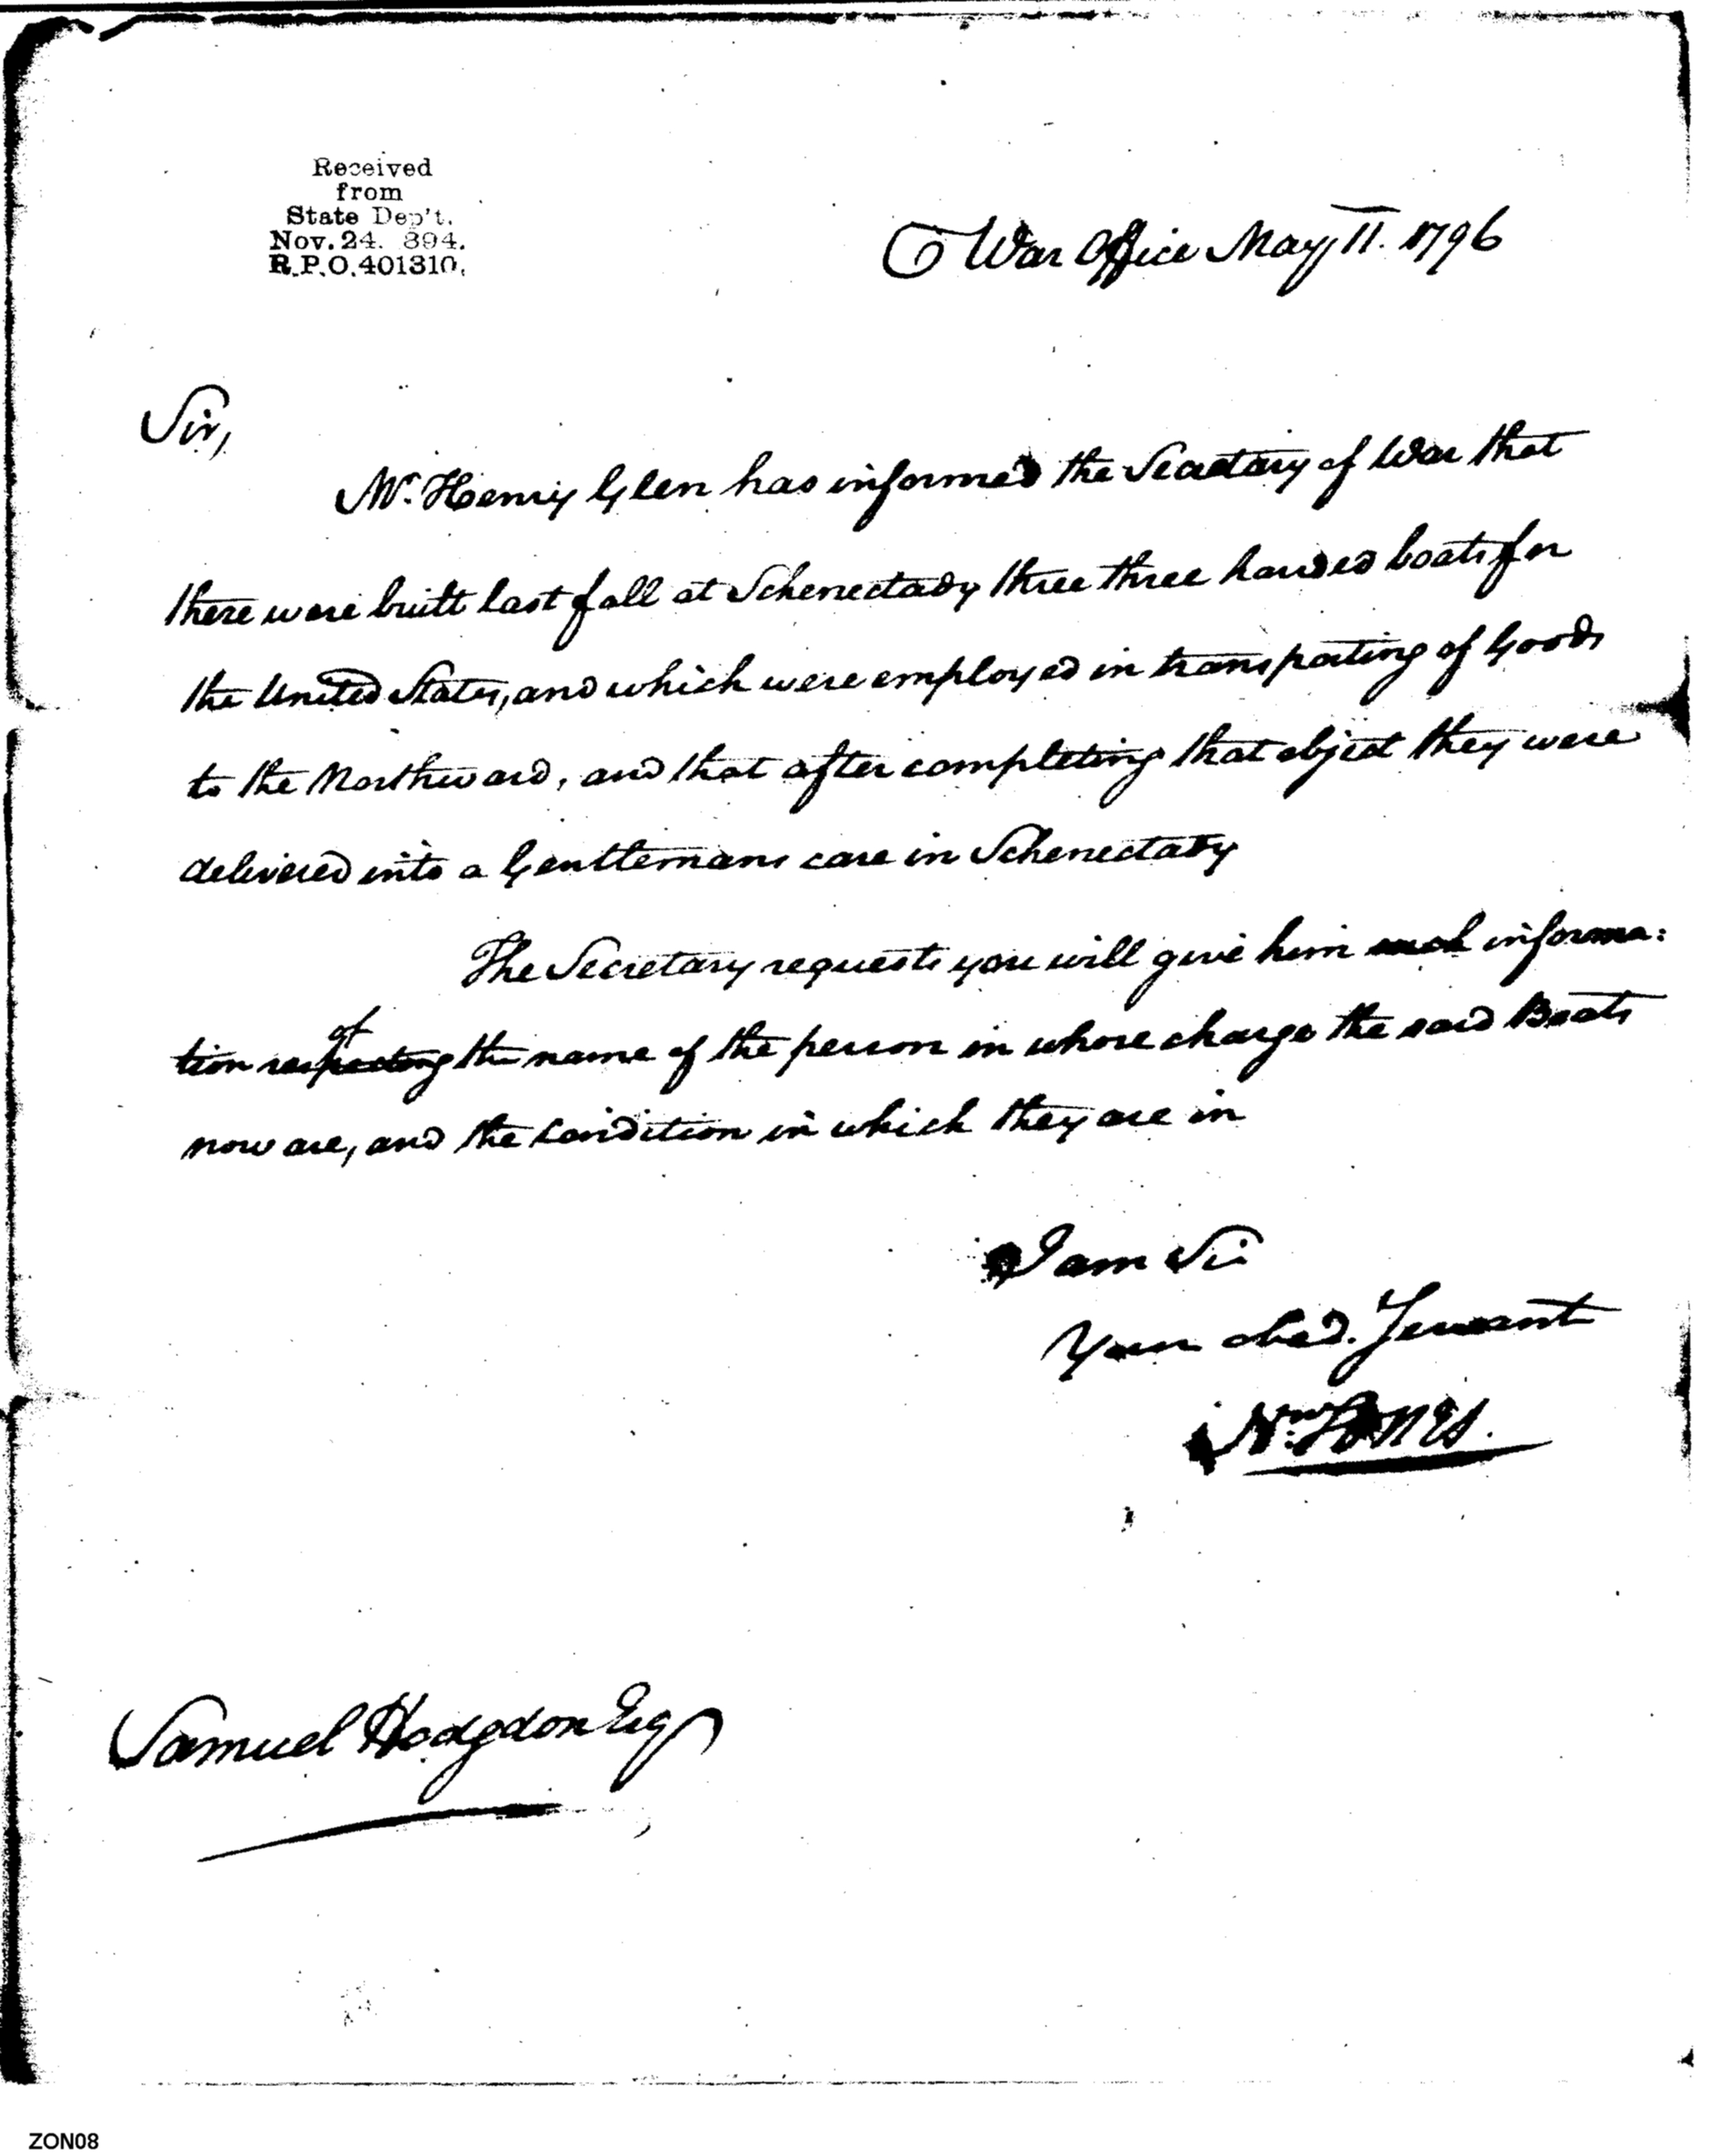 Received
from
State Dep't.
Nov. 24. 894.
R.P.O. 401310.
War Office May 11. 1796
Sir,
Mr. Henry Glen has informed the Secretary of War that
there were built last fall at Schenectady three three handed boats for
the United States, and which were employed in transporting of Goods
to the Northward, and that after completing that object they were
delivered into a Gentlemans care in Schenectady
The Secretary requests you will give him such informa:
of
tion respecting the name of the person in whose charge the said Boats
now are, and the Condition in which they are in
I am Sir
Your obed. Servant
Nw. Jones.
Samuel Hodgdon Esq
ZON08